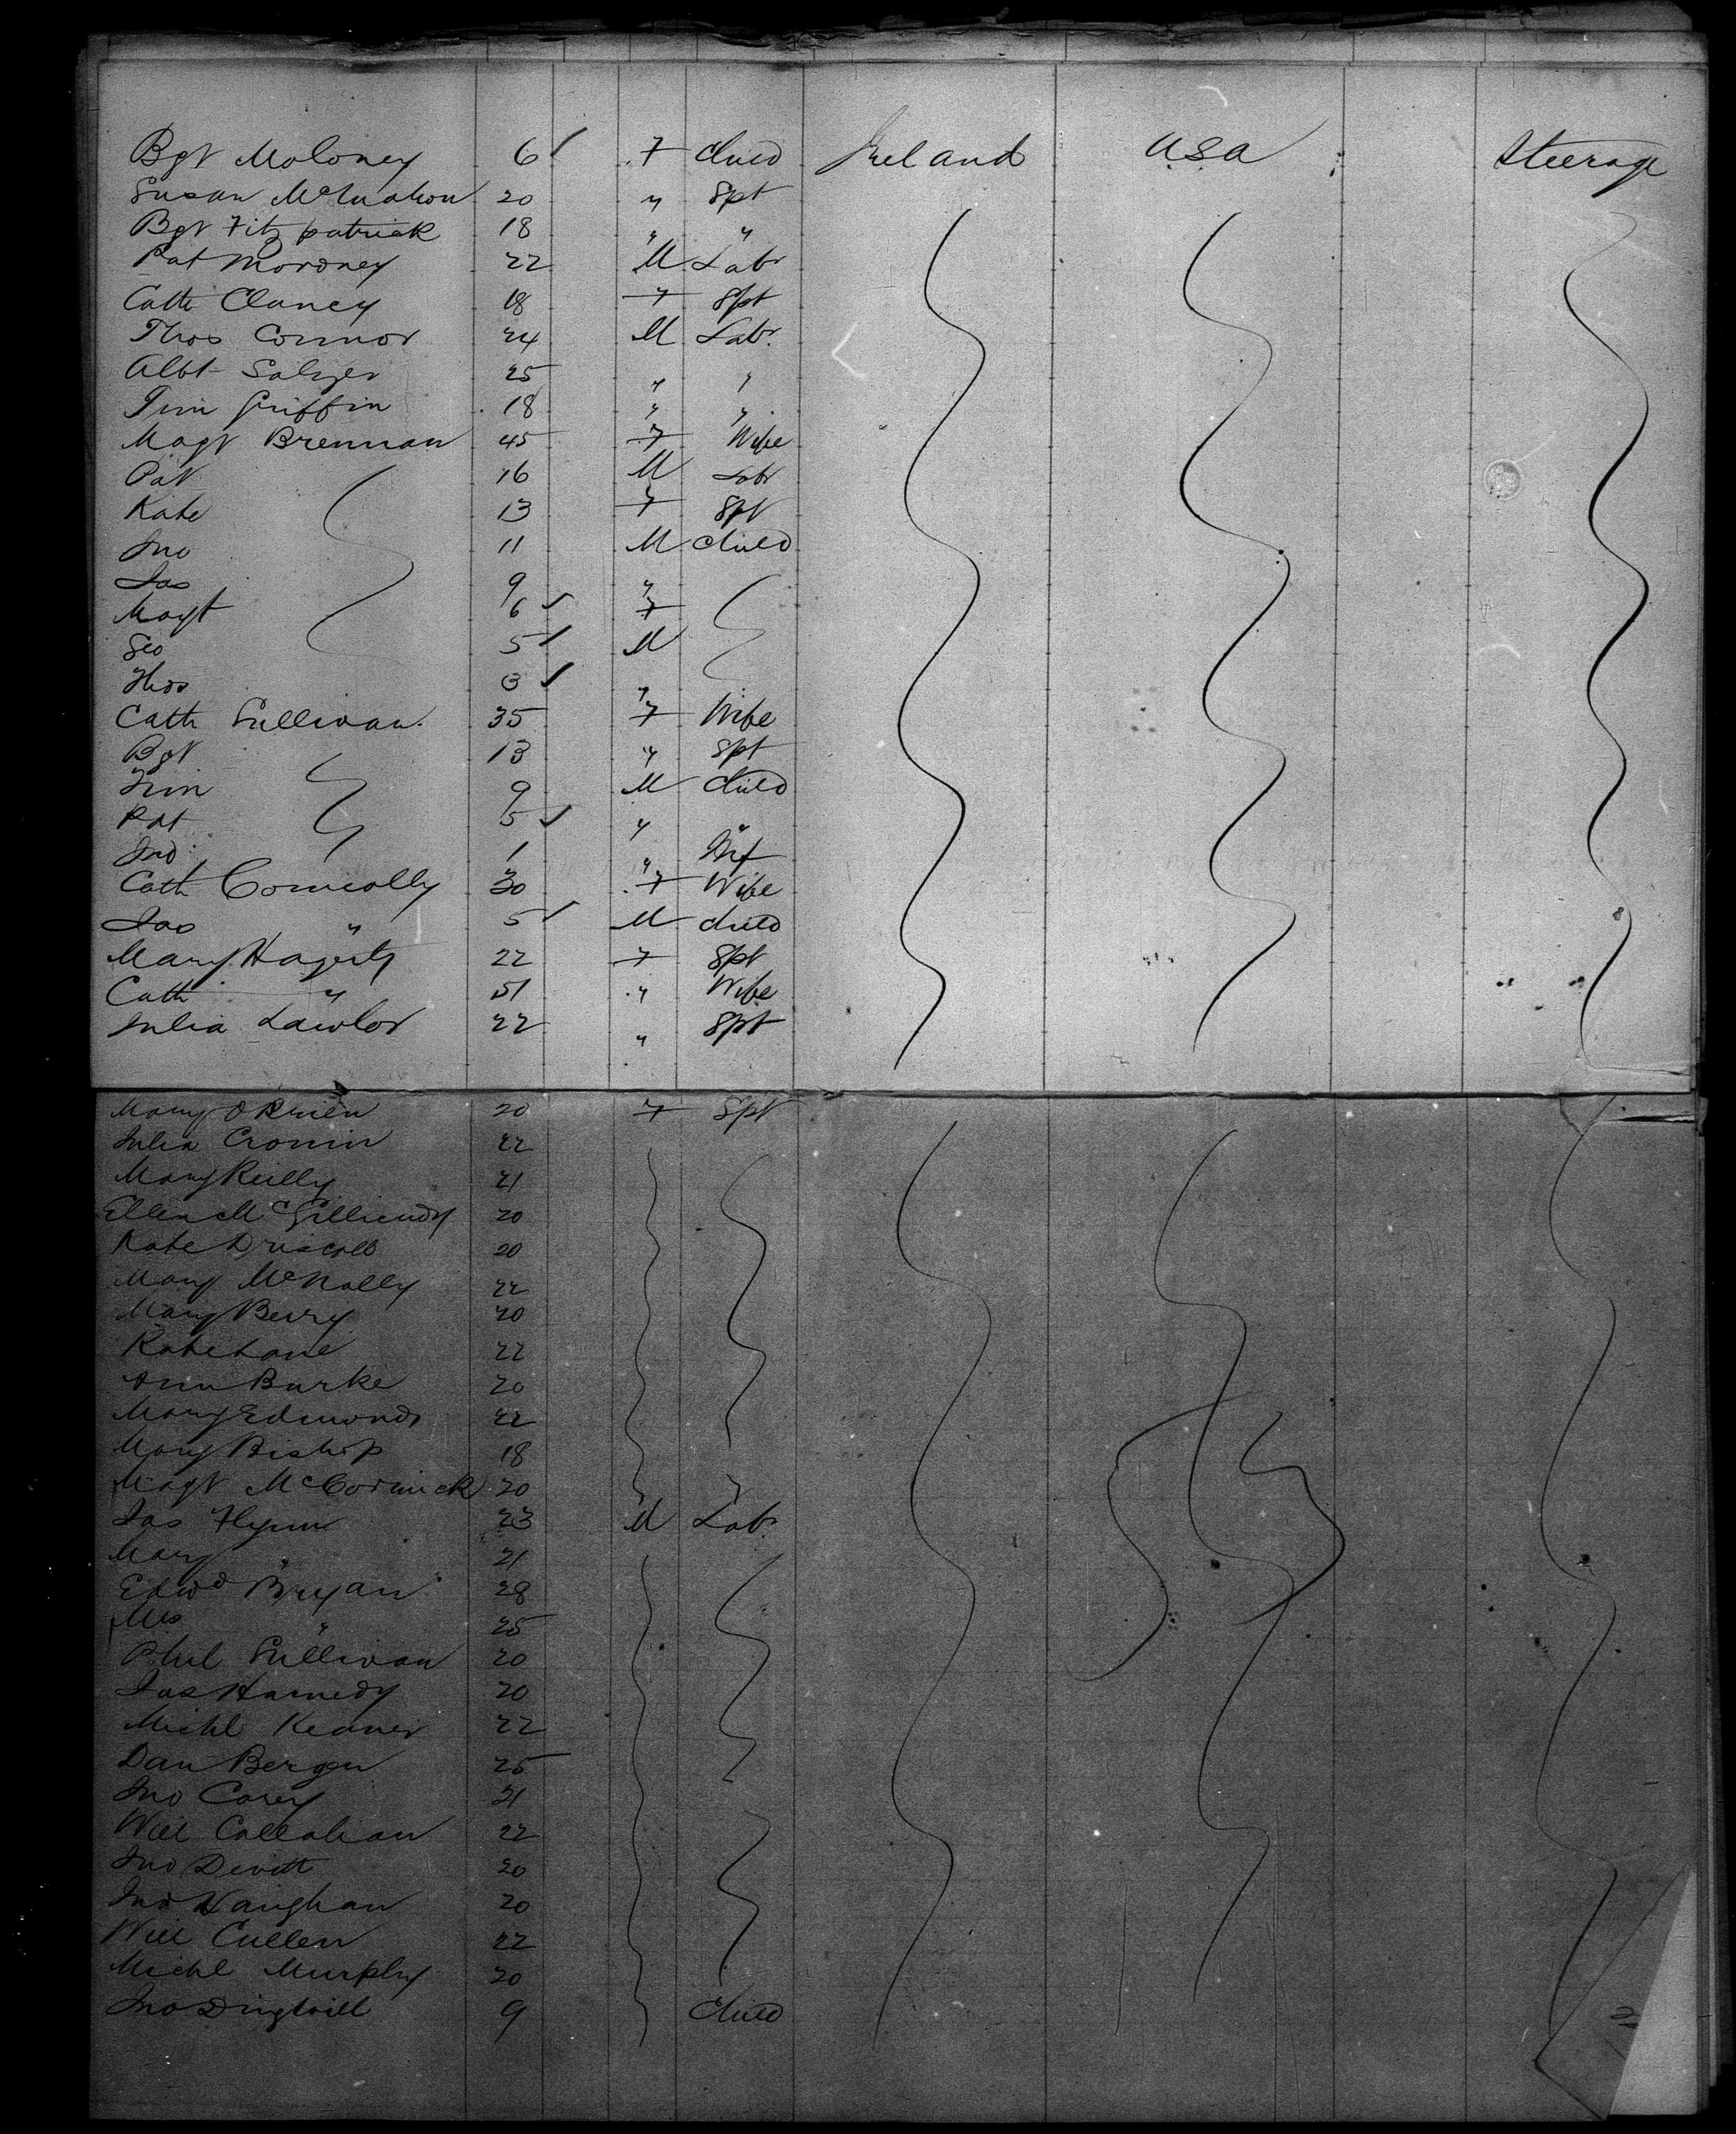 Bgt Moloney 6 F Child Ireland USA Steerage
Susan McMahon 20 " Spt
Bgt Fitzpatrick 18 " "
Pat Moroney 22 M Labr
Cath Clancy 18 F Spt
Thos Connor 24 M Labr.
Albt Salzer 25 " "
Tim Griffin 18 " "
Magt Brennan 45 F Wife
Pat 16 M Labr
Kate 13 F Spt
Jno 11 M Child
Jas 9 "
Magt 6 F
Geo 5 M
Thos 3 "
Cath Sullivan 35 F Wife
Bgt 13 " Spt
Tim 9 M Child
Pat 5 " "
Jno 1 " Inf
Cath Connolly 30 F Wife
Jas " 5 M Child
Mary Hagerty 22 F Spt
Cath " 51 " Wife
Julia Lawlor 22 " Spt
Mary O'Brien 20 F Spt
Julia Cronin 22
Mary Reilly 21
Ellen 20
Kate Driscoll 20
Mary McNally 22
Mary Berry 20
Kate Lane 22
Ann Burke 20
Mary Edmonds 22
Mary Bishop 18
Magt McCormick 20
Jas Flynn 23 M Labr.
Mary " 21
Edwd Bryan 28
Mrs " 25
Phil Sullivan 20
Jas Harnedy 20
Michl 22
Dan Bergen 25
Jno Carey 21
Will Callahan 22
Jno Devitt 20
Jno Vaughan 20
Will Cullen 22
Michl Murphy 20
Jno 9 Child